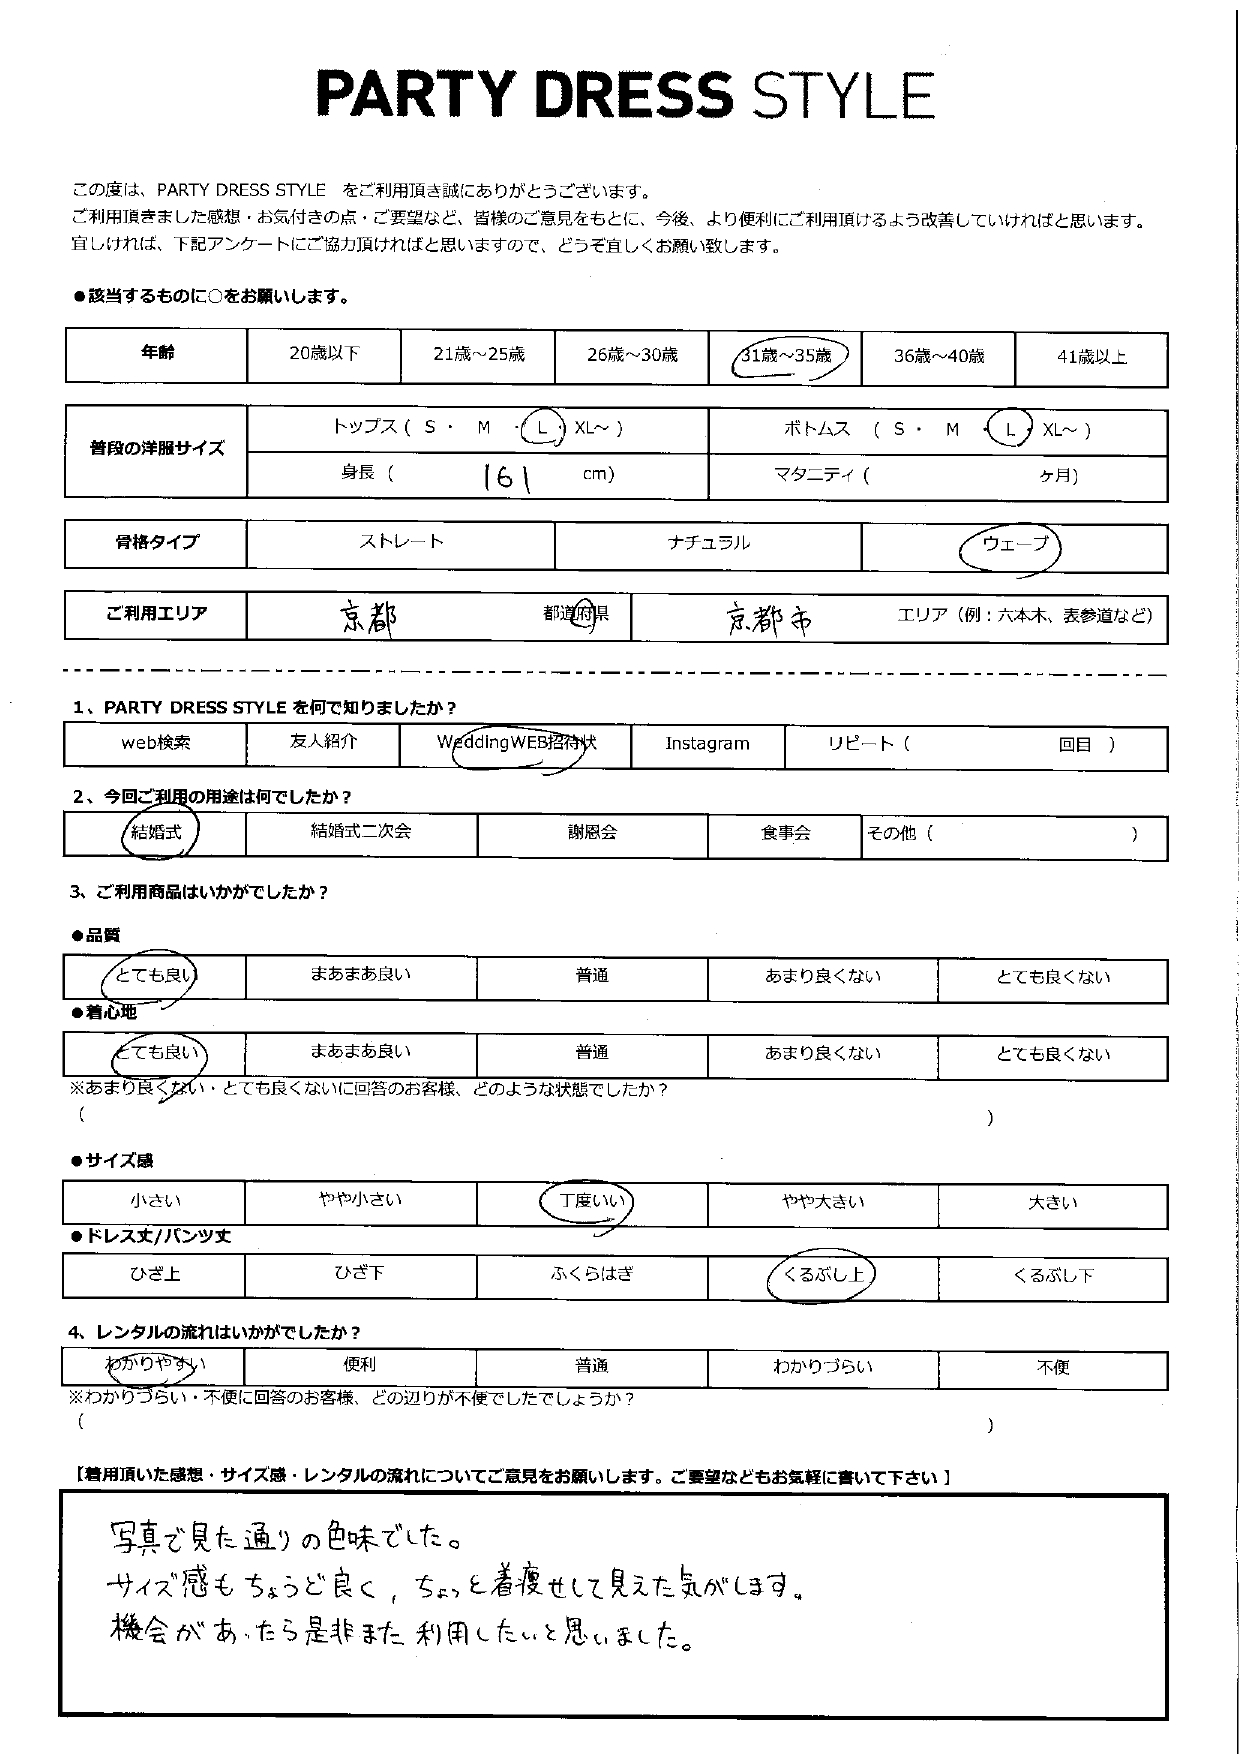 PARTY DRESS STYLE
この度は、PARTY DRESS STYLE をご利用頂き誠にありがとうございます。
ご利用頂きました感想・お気付きの点・ご要望など、皆様のご意見をもとに、今後、より便利にご利用頂けるよう改善していければと思います。
宜しければ、下記アンケートにご協力頂ければと思いますので、どうぞ宜しくお願い致します。
●該当するものに○をお願いします。
年齢 20歳以下 21歳～25歳 26歳～30歳 31歳～35歳 36歳～40歳 41歳以上
普段の洋服サイズ
トップス ( S ・ M ・ L ・ XL～ ) ボトムス ( S ・ M ・ L ・ XL～ )
身長 ( 161 cm) マタニティ ( ヶ月)
骨格タイプ ストレート ナチュラル ウェーブ
ご利用エリア 京都 都道府県 京都市 エリア（例：六本木、表参道など）
1、PARTY DRESS STYLE を何で知りましたか？
web検索 友人紹介 WeddingWEB招待状 Instagram リピート ( 回目 )
2、今回ご利用の用途は何でしたか？
結婚式 結婚式二次会 謝恩会 食事会 その他 ( )
3、ご利用商品はいかがでしたか？
●品質
とても良い まあまあ良い 普通 あまり良くない とても良くない
●着心地
とても良い まあまあ良い 普通 あまり良くない とても良くない
※あまり良くない・とても良くないに回答のお客様、どのような状態でしたか？
( )
●サイズ感
小さい やや小さい 丁度いい やや大きい 大きい
●ドレス丈/パンツ丈
ひざ上 ひざ下 ふくらはぎ くるぶし上 くるぶし下
4、レンタルの流れはいかがでしたか？
わかりやすい 便利 普通 わかりづらい 不便
※わかりづらい・不便に回答のお客様、どの辺りが不便でしたでしょうか？
( )
【着用頂いた感想・サイズ感・レンタルの流れについてご意見をお願いします。ご要望などもお気軽に書いて下さい 】
写真で見た通りの色味でした。
サイズ感もちょうど良く，ちょっと着痩せして見えた気がします。
機会があったら是非また利用したいと思いました。